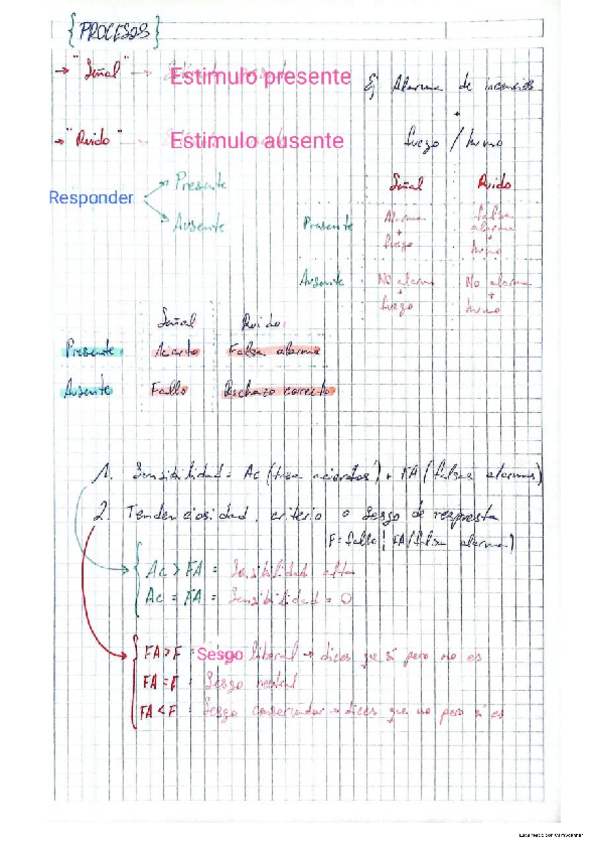 {PROCESOS}
→ "Señal" → Estimulo presente
Ej Alarma de incendios
→ "Ruido" → Estimulo ausente
fuego / humo
Responder
Presente
Ausente
Señal Ruido
Presente Alarma + fuego falsa alarma + humo
Ausente NO alarma + fuego No alarma + humo
Señal Ruido
Presente Acierto Falsa alarma
Ausente Fallo Rechazo correcto
1. Sensibilidad = Ac (tasa aciertos) + FA (falsas alarmas)
2. Tendenciosidad, criterio o sesgo de respuesta
F = fallo FA (falsa alarma)
Ac > FA = Sensibilidad alta
Ac = FA = Sensibilidad = 0
FA > F : Sesgo liberal → dices que sí pero no es
FA = F : Sesgo neutral
FA < F : Sesgo conservador → dices que no pero sí es